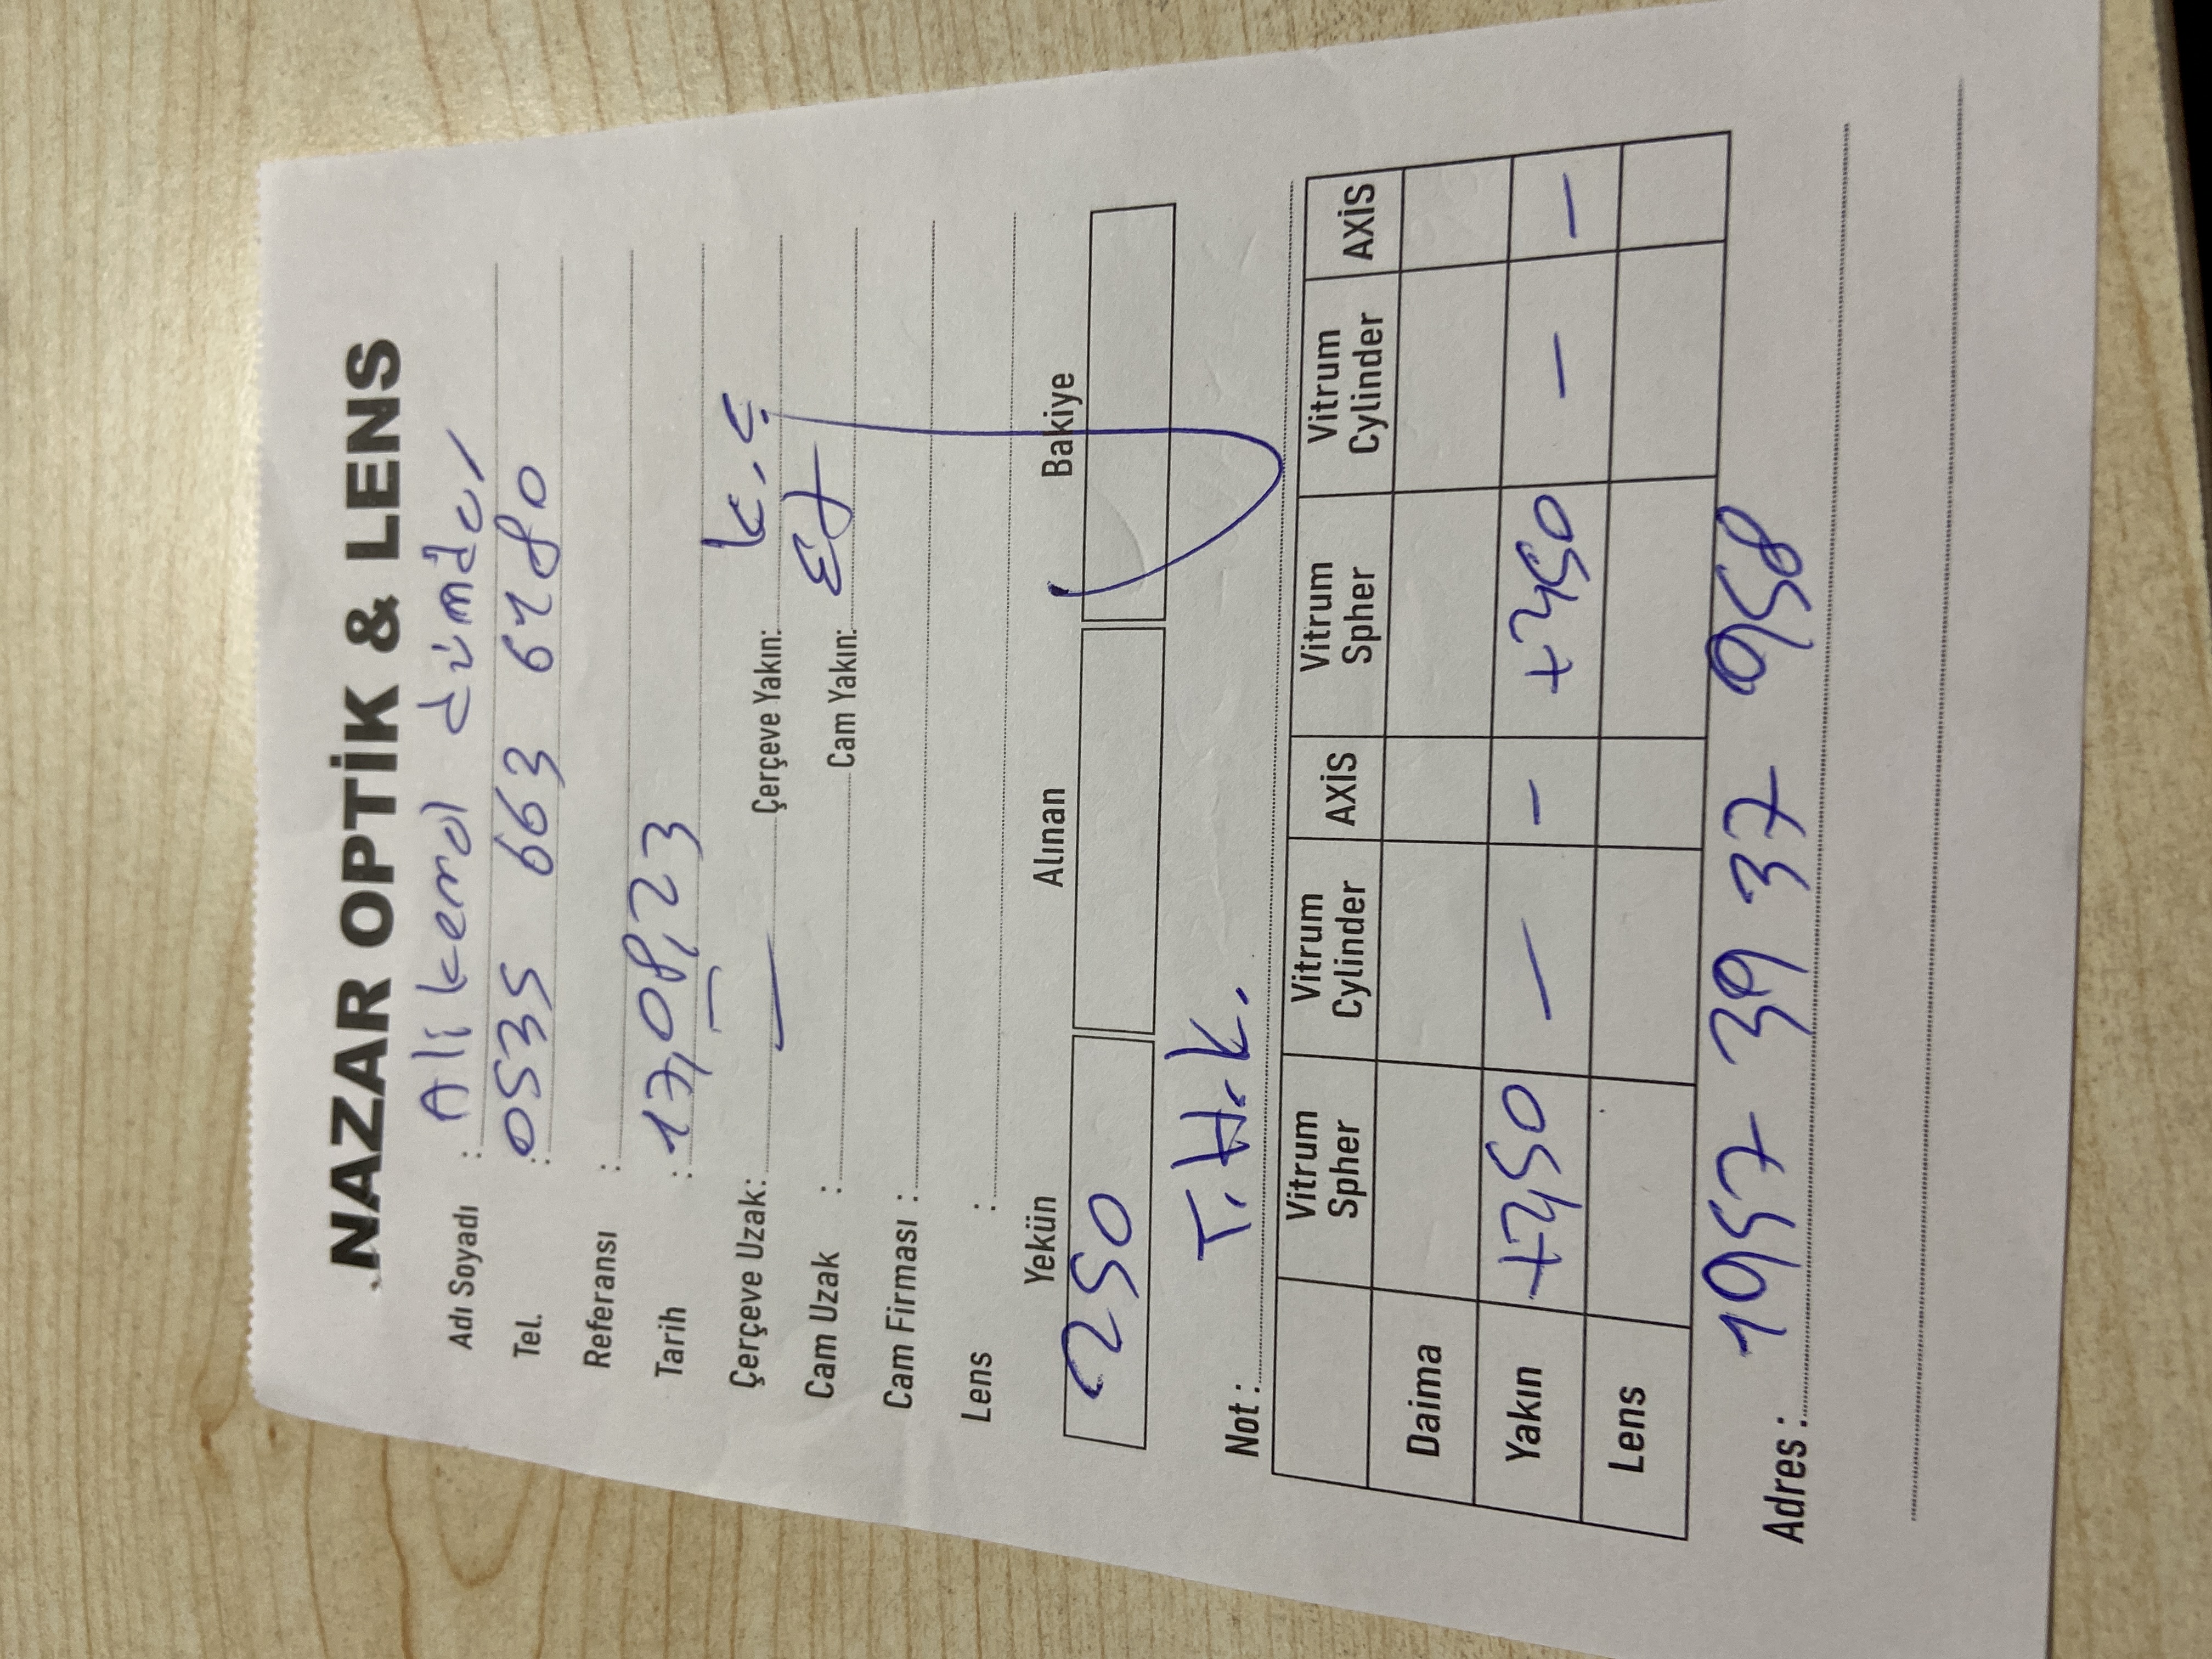 NAZAR OPTİK & LENS
Adı Soyadı : Ali kemal dündar
Tel. : 0535 663 6180
Referansı :
Tarih : 17,08,23
Çerçeve Uzak: — Çerçeve Yakın: K.Ç
Cam Uzak : Cam Yakın:
Cam Firması :
Lens :
Yekün Alınan Bakiye
250
Not : T.H.K.
Vitrum Spher Vitrum Cylinder AXİS Vitrum Spher Vitrum Cylinder AXİS
Daima
Yakın +2,50 — — +2,50 — —
Lens
Adres : 1957 39 37 958